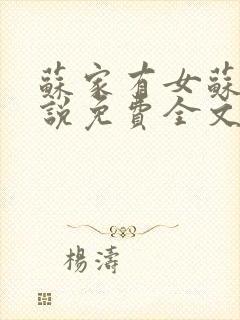 蘇家有女蘇
說免費全文
楊濤